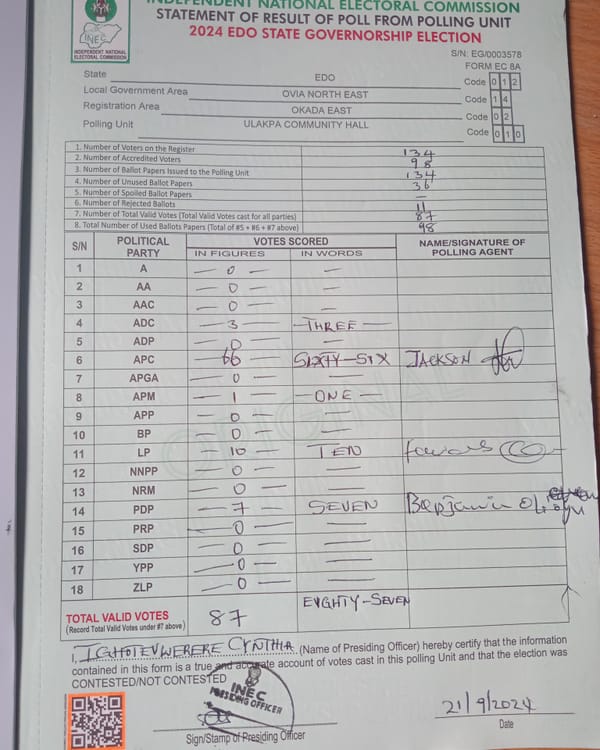 INDEPENDENT NATIONAL ELECTORAL COMMISSION
STATEMENT OF RESULT OF POLL FROM POLLING UNIT
2024 EDO STATE GOVERNORSHIP ELECTION
INEC
INDEPENDENT NATIONAL
ELECTORAL COMMISSION
S/N: EG/0003578
FORM EC 8A
State EDO Code 0 1 2
Local Government Area OVIA NORTH EAST Code 1 4
Registration Area OKADA EAST Code 0 2
Polling Unit ULAKPA COMMUNITY HALL Code 0 1 0
1. Number of Voters on the Register 134
2. Number of Accredited Voters 98
3. Number of Ballot Papers Issued to the Polling Unit 134
4. Number of Unused Ballot Papers 36
5. Number of Spoiled Ballot Papers —
6. Number of Rejected Ballots 11
7. Number of Total Valid Votes (Total Valid Votes cast for all parties) 87
8. Total Number of Used Ballots Papers (Total of #5 + #6 + #7 above) 98
S/N POLITICAL PARTY VOTES SCORED NAME/SIGNATURE OF POLLING AGENT
IN FIGURES IN WORDS
1 A — 0 — —
2 AA — 0 — —
3 AAC — 0 — —
4 ADC — 3 — — THREE —
5 ADP — 0 — —
6 APC — 66 SIXTY-SIX JACKSON
7 APGA — 0 — —
8 APM — 1 — — ONE —
9 APP — 0 — —
10 BP — 0 — —
11 LP — 10 — TEN
12 NNPP — 0 — —
13 NRM — 0 — —
14 PDP — 7 — SEVEN Benjamin
15 PRP — 0 — —
16 SDP — 0 — —
17 YPP — 0 — —
18 ZLP — 0 — —
TOTAL VALID VOTES 87 EYGHTY-SEVEN
(Record Total Valid Votes under #7 above)
I, IGHOTEVWERERE CYNTHIA (Name of Presiding Officer) hereby certify that the information
contained in this form is a true and accurate account of votes cast in this polling Unit and that the election was
CONTESTED/NOT CONTESTED
INEC
PRESIDING OFFICER
21/9/2024
Sign/Stamp of Presiding Officer
Date
ORIGINAL